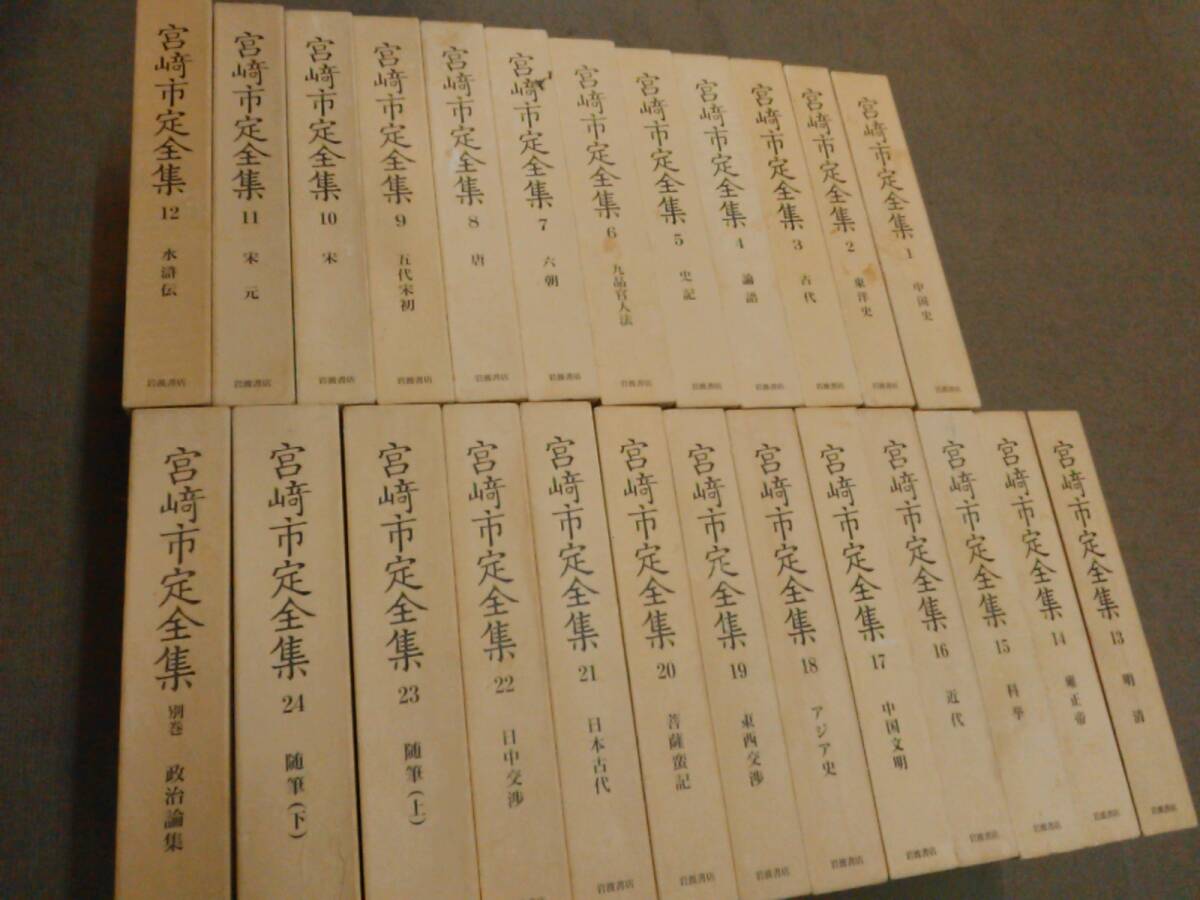 宮﨑市定全集 12 水滸伝 岩波書店
宮﨑市定全集 11 宋 元 岩波書店
宮﨑市定全集 10 宋 岩波書店
宮﨑市定全集 9 五代宋初 岩波書店
宮﨑市定全集 8 唐 岩波書店
宮﨑市定全集 7 六朝 岩波書店
宮﨑市定全集 6 九品官人法 岩波書店
宮﨑市定全集 5 史記 岩波書店
宮﨑市定全集 4 論語 岩波書店
宮﨑市定全集 3 古代 岩波書店
宮﨑市定全集 2 東洋史 岩波書店
宮﨑市定全集 1 中国史 岩波書店
宮﨑市定全集 別巻 政治論集
宮﨑市定全集 24 随筆(下)
宮﨑市定全集 23 随筆(上)
宮﨑市定全集 22 日中交渉
宮﨑市定全集 21 日本古代 岩波書店
宮﨑市定全集 20 菩薩蛮記 岩波書店
宮﨑市定全集 19 東西交渉 岩波書店
宮﨑市定全集 18 アジア史 岩波書店
宮﨑市定全集 17 中国文明 岩波書店
宮﨑市定全集 16 近代 岩波書店
宮﨑市定全集 15 科挙 岩波書店
宮﨑市定全集 14 雍正帝 岩波書店
宮﨑市定全集 13 明 清 岩波書店